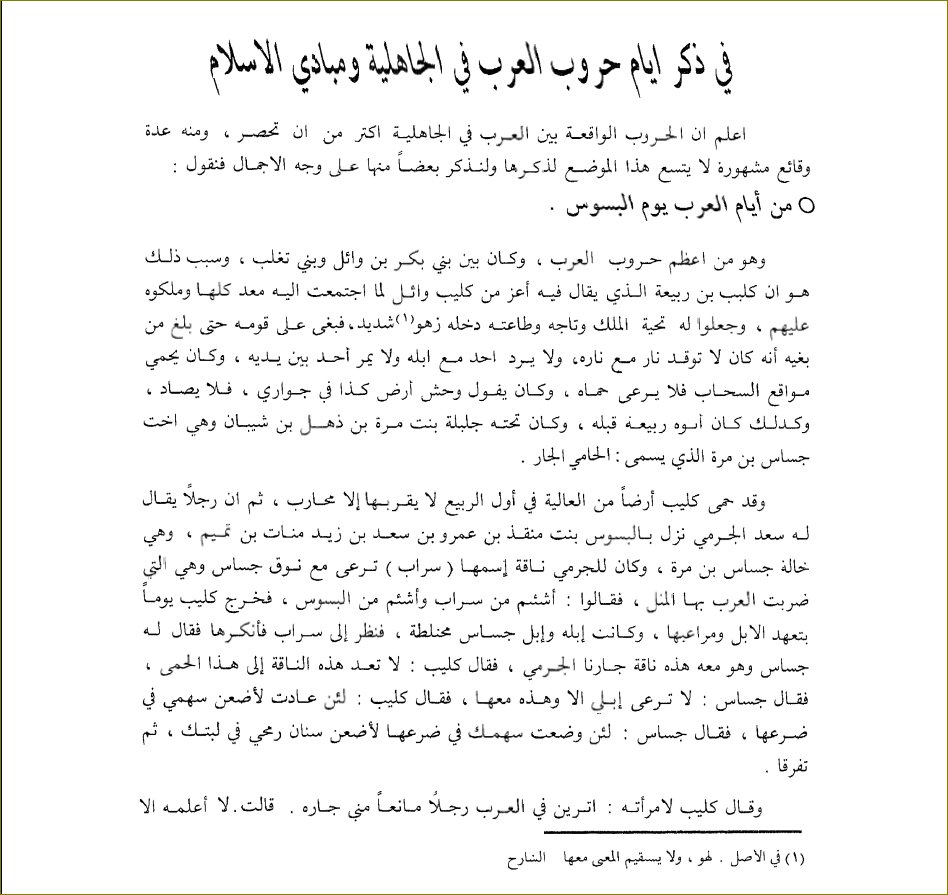 في ذكر ايام حروب العرب في الجاهلية ومبادي الاسلام
اعلم ان الحروب الواقعة بين العرب في الجاهلية اكثر من ان تحصر ، ومنه عدة
وقائع مشهورة لا يتسع هذا الموضع لذكرها ولنذكر بعضاً منها على وجه الاجمال فنقول :
○ من أيام العرب يوم البسوس .
وهو من اعظم حروب العرب ، وكان بين بني بكر بن وائل وبني تغلب ، وسبب ذلك
هو ان كليب بن ربيعة الذي يقال فيه أعز من كليب وائل لما اجتمعت اليه معد كلها وملكوه
عليهم ، وجعلوا له تحية الملك وتاجه وطاعته دخله زهو(١) شديد، فبغى على قومه حتى بلغ من
بغيه أنه كان لا توقد نار مع ناره، ولا يرد احد مع ابله ولا يمر أحد بين يديه ، وكان يحمي
مواقع السحاب فلا يرعى حماه ، وكان يفول وحش أرض كذا في جواري ، فلا يصاد ،
وكدلك كان ابوه ربيعه قبله ، وكان تحته جلبلة بنت مرة بن ذهل بن شيبان وهي اخت
جساس بن مرة الذي يسمى : الحامي الجار .
وقد حمى كليب أرضاً من العالية في أول الربيع لا يقربها إلا محارب ، ثم ان رجلًا يقال
له سعد الجرمي نزل بالبسوس بنت منقذ بن عمرو بن سعد بن زيد منات بن تميم ، وهي
خالة جساس بن مرة ، وكان للجرمي ناقة إسمها ( سراب ) ترعى مع نوق جساس وهي التي
ضربت العرب بها المثل ، فقالوا : أشئم من سراب وأشئم من البسوس ، فخرج كليب يوماً
بتعهد الابل ومراعبها ، وكانت إبله وإبل جساس مختلطة ، فنظر إلى سراب فأنكرها فقال له
جساس وهو معه هذه ناقة جارنا الجرمي ، فقال كليب : لا تعد هذه الناقة إلى هذا الحمى ،
فقال جساس : لا ترعى إبلي الا وهذه معها ، فقال كليب : لئن عادت لأضعن سهمي في
ضرعها ، فقال جساس : لئن وضعت سهمك في ضرعها لأضعن سنان رمحي في لبتك ، ثم
تفرقا .
وقال كليب لامرأته : اترين في العرب رجلًا مانعاً مني جاره . قالت. لا أعلمه الا
(١) في الاصل . لهو ، ولا يسقيم المعنى معها الشارح